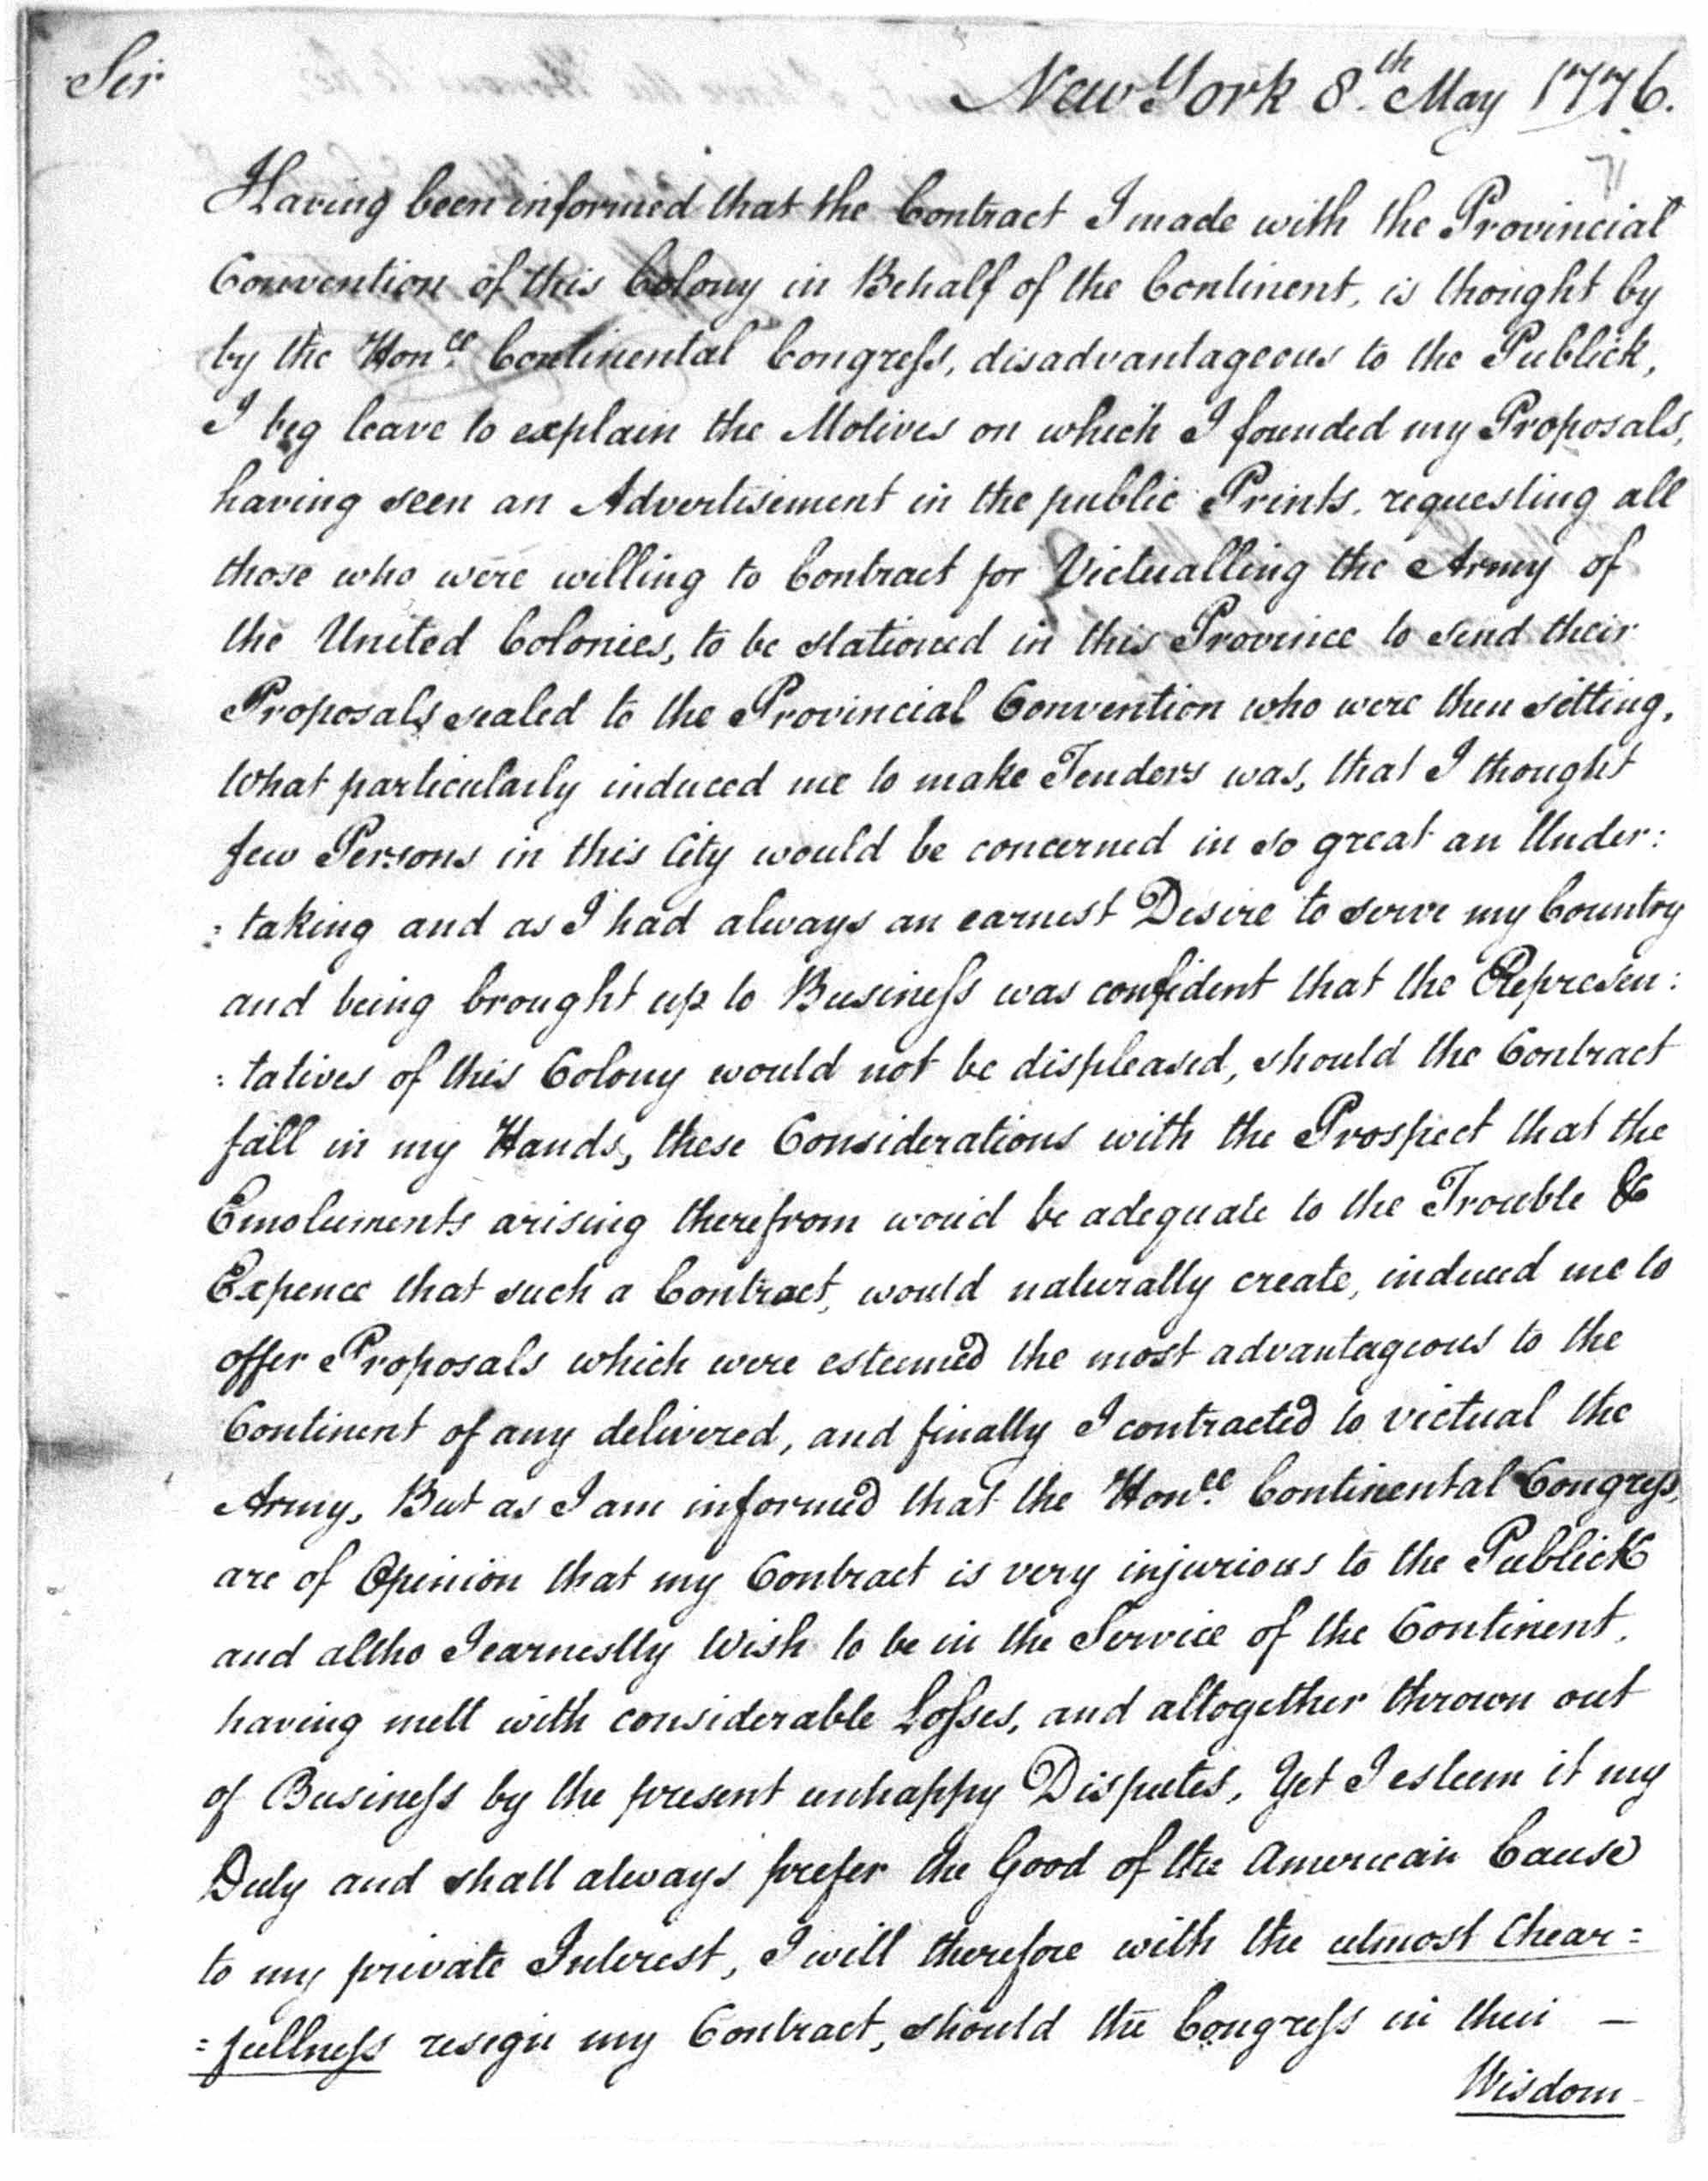 Sir
New York 8.th May 1776.
Having been informed that the Contract I made with the Provincial
Convention of this Colony in Behalf of the Continent, is thought by
by the Honble. Continental Congress, disadvantageous to the Publick,
I beg leave to explain the Motives on which I founded my Proposals,
having seen an Advertisement in the public Prints, requesting all
those who were willing to Contract for Victualling the Army of
the United Colonies, to be stationed in this Province to send their
Proposals sealed to the Provincial Convention who were then sitting,
What particularly induced me to make Tenders was, that I thought
few Persons in this City would be concerned in so great an Under:
:taking and as I had always an earnest Desire to serve my Country
and being brought up to Business was confident that the Represen:
:tatives of this Colony would not be displeased, should the Contract
fall in my Hands, these Considerations with the Prospect that the
Emoluments arising therefrom would be adequate to the Trouble &
Expence that such a Contract, would naturally create, induced me to
offer Proposals which were esteemed the most advantageous to the
Continent of any delivered, and finally I contracted to victual the
Army, But as I am informed that the Honble. Continental Congress,
are of Opinion that my Contract is very injurious to the Publick
and altho I earnestly Wish to be in the Service of the Continent,
having mett with considerable Losses, and altogether thrown out
of Business by the present unhappy Disputes, Yet I esteem it my
Duty and shall always prefer the Good of the American Cause
to my private Interest, I will therefore with the utmost Chear=
=fullness resign my Contract, should the Congress in their —
Wisdom